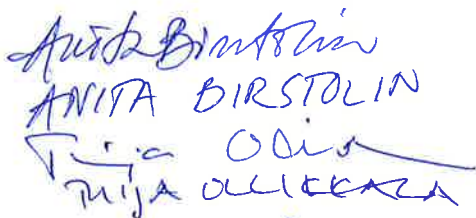 Anita Birstolin
ANITA BIRSTOLIN
Tuija
TUIJA OLLIKKALA